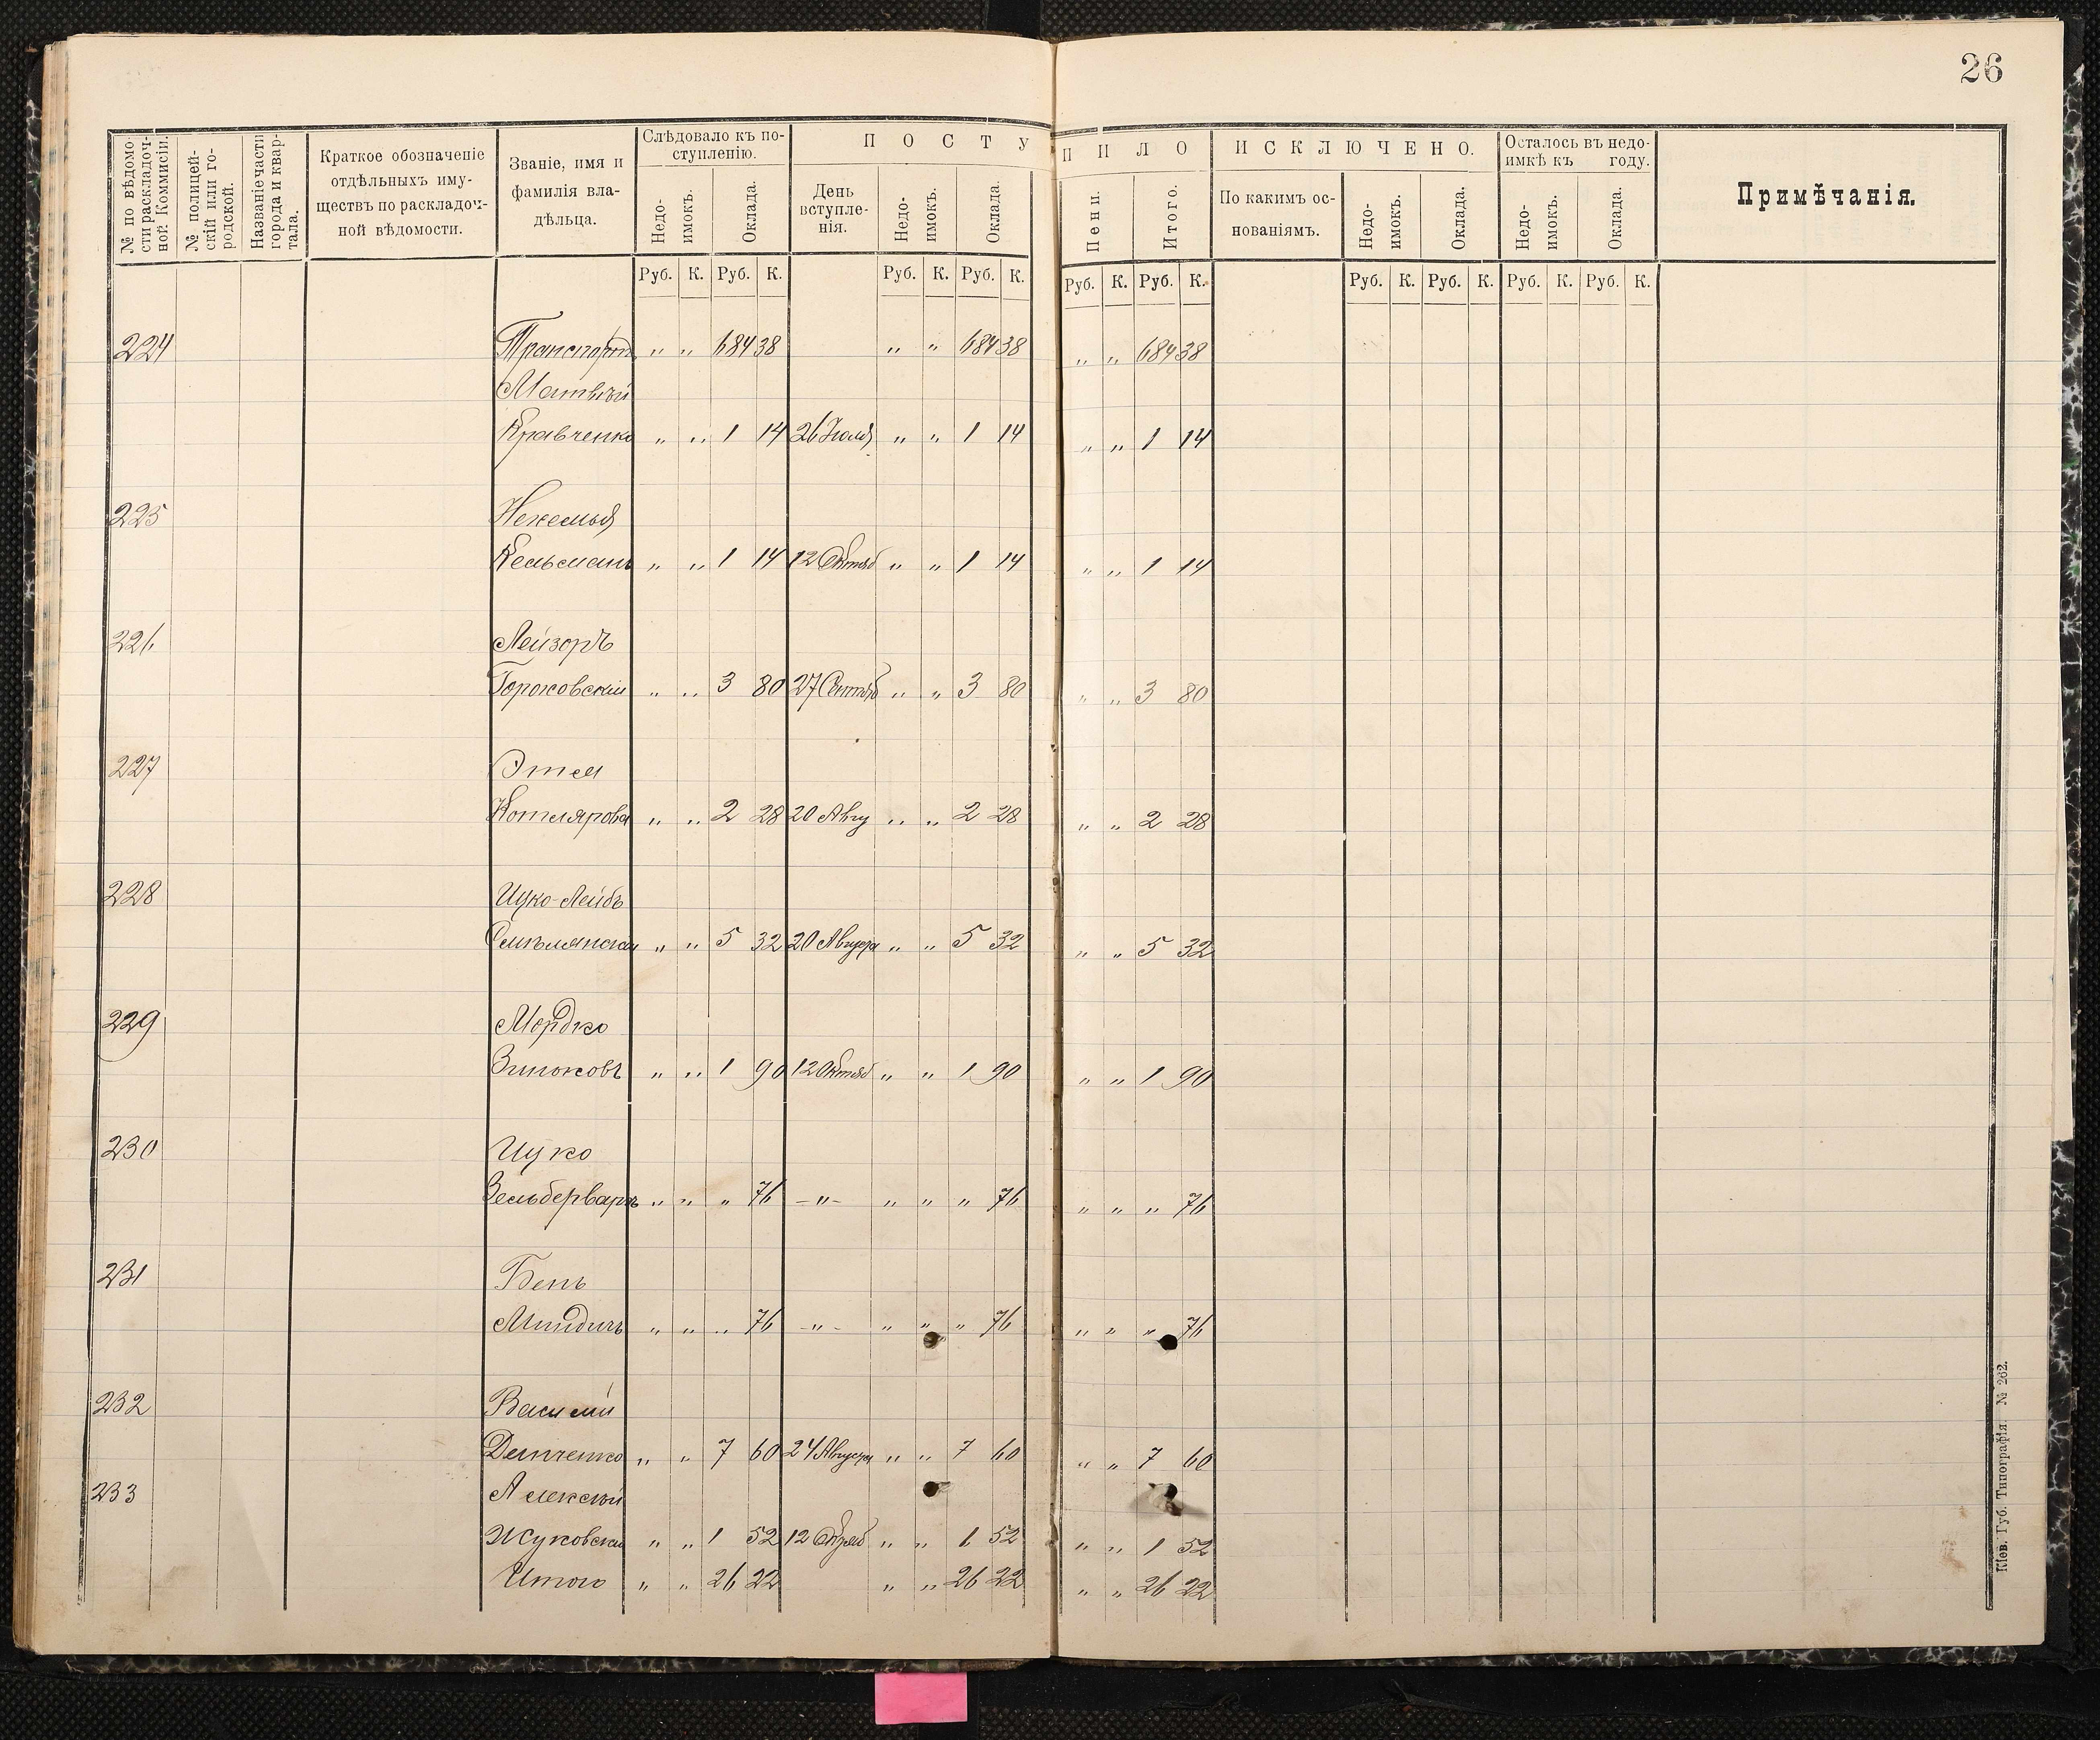 26
№ по вѣдомости раскладочной Коммисіи.
№ полицейскій или городской.
Названіе части города и квартала.
Краткое обозначеніе отдѣльныхъ имуществъ по раскладочной вѣдомости.
Званіе, имя и фамилія владѣльца.
Слѣдовало къ поступленію.
Недоимокъ. Оклада.
П О С Т У П И Л О
День вступленія. Недоимокъ. Оклада. Пени. Итого.
И С К Л Ю Ч Е Н О.
По какимъ основаніямъ. Недоимокъ. Оклада.
Осталось въ недоимкѣ къ году.
Недоимокъ. Оклада.
Примѣчанія.
Руб. К. Руб. К. Руб. К. Руб. К. Руб. К. Руб. К. Руб. К. Руб. К. Руб. К. Руб. К.
224 Транспортъ „ „ 684 38 „ „ 684 38 „ „ 684 38
Матвѣй
Кравченко „ „ 1 14 26 Іюля „ „ 1 14 „ „ 1 14
225 Нехемья
Кельманъ „ „ 1 14 12 Октяб „ „ 1 14 „ „ 1 14
226 Лейзоръ
Гороховскій „ „ 3 80 27 Сентяб „ „ 3 80 „ „ 3 80
227 Этея
Котлярова „ „ 2 28 20 Авгу „ „ 2 28 „ „ 2 28
228 Ицко-Лейбъ
„ „ 5 32 20 Августа „ „ 5 32 „ „ 5 32
229 Мордко
Зиньковъ „ „ 1 90 12 Октяб „ „ 1 90 „ „ 1 90
230 Ицко
Зельберварь „ „ „ 76 -„- „ „ „ 76 „ „ „ 76
231 Бень
Миндичъ „ „ „ 76 -„- „ „ „ 76 „ „ „ 76
232 Василій
Демченко „ „ 7 60 24 Августа „ „ 7 60 „ „ 7 60
233 Алексѣй
Жуковскій „ „ 1 52 12 „ „ 1 52 „ „ 1 52
Итого „ „ 26 22 „ „ 26 22 „ „ 26 22
Кіев. Губ. Типографія. № 262.